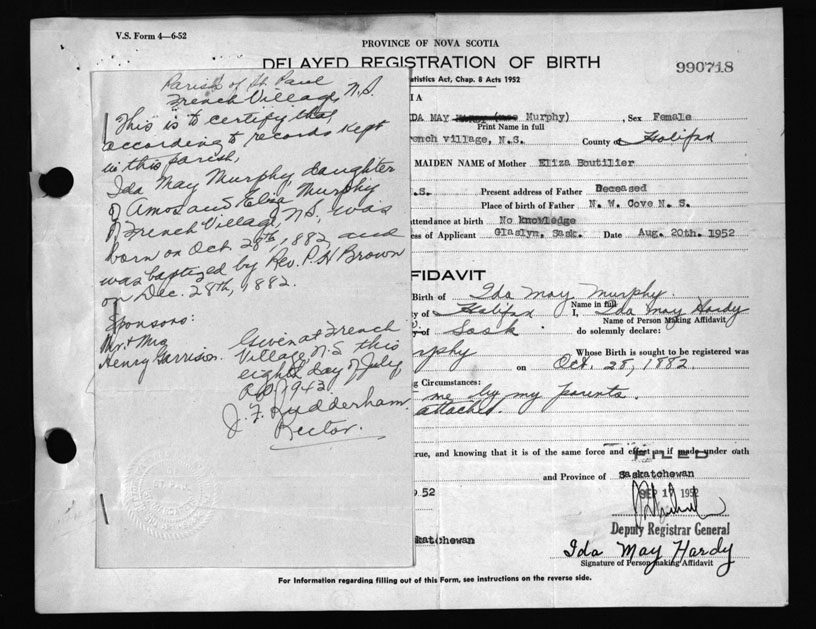 V.S. Form 4—6-52
PROVINCE OF NOVA SCOTIA
DELAYED REGISTRATION OF BIRTH
990718
atistics Act, Chap. 8 Acts 1952
Parish of St Paul
French Village, N.S.
This is to certify that
according to records kept
in this parish,
Ida May Murphy, daughter
of Amos and Eliza Murphy
of French Village, N.S. was
born on Oct 28th, 1882 and
was baptized by Rev. P. H Brown
on Dec. 28th, 1882.
Sponsors:
Mr. + Mrs
Henry Garrison.
Given at French
Village N.S this
eighth day of July
A.D. 1943
J. F. Rudderham
Rector.
IA
DA MAY Murphy) , Sex Female
Print Name in full
rench village, N.S. County of Halifax
MAIDEN NAME of Mother Eliza Boutilier
.S. Present address of Father Deceased
Place of birth of Father N. W. Cove N. S.
attendance at birth No knowledge
ess of Applicant Glaslyn, Sask. Date Aug. 20th. 1952
FIDAVIT
Birth of Ida May Murphy.
Name in full
ty of Halifax I, Ida May Hardy
Name of Person Making Affidavit
y of Sask do solemnly declare:
rphy Whose Birth is sought to be registered was
on Oct. 28, 1882.
g Circumstances:
me by my parents.
attached.
true, and knowing that it is of the same force and effect as if made under oath
FILED
and Province of Saskatchewan
9 52
SEP 17 1952
Deputy Registrar General
katchewan
Ida May Hardy
Signature of Person making Affidavit
For Information regarding filling out of this Form, see instructions on the reverse side.